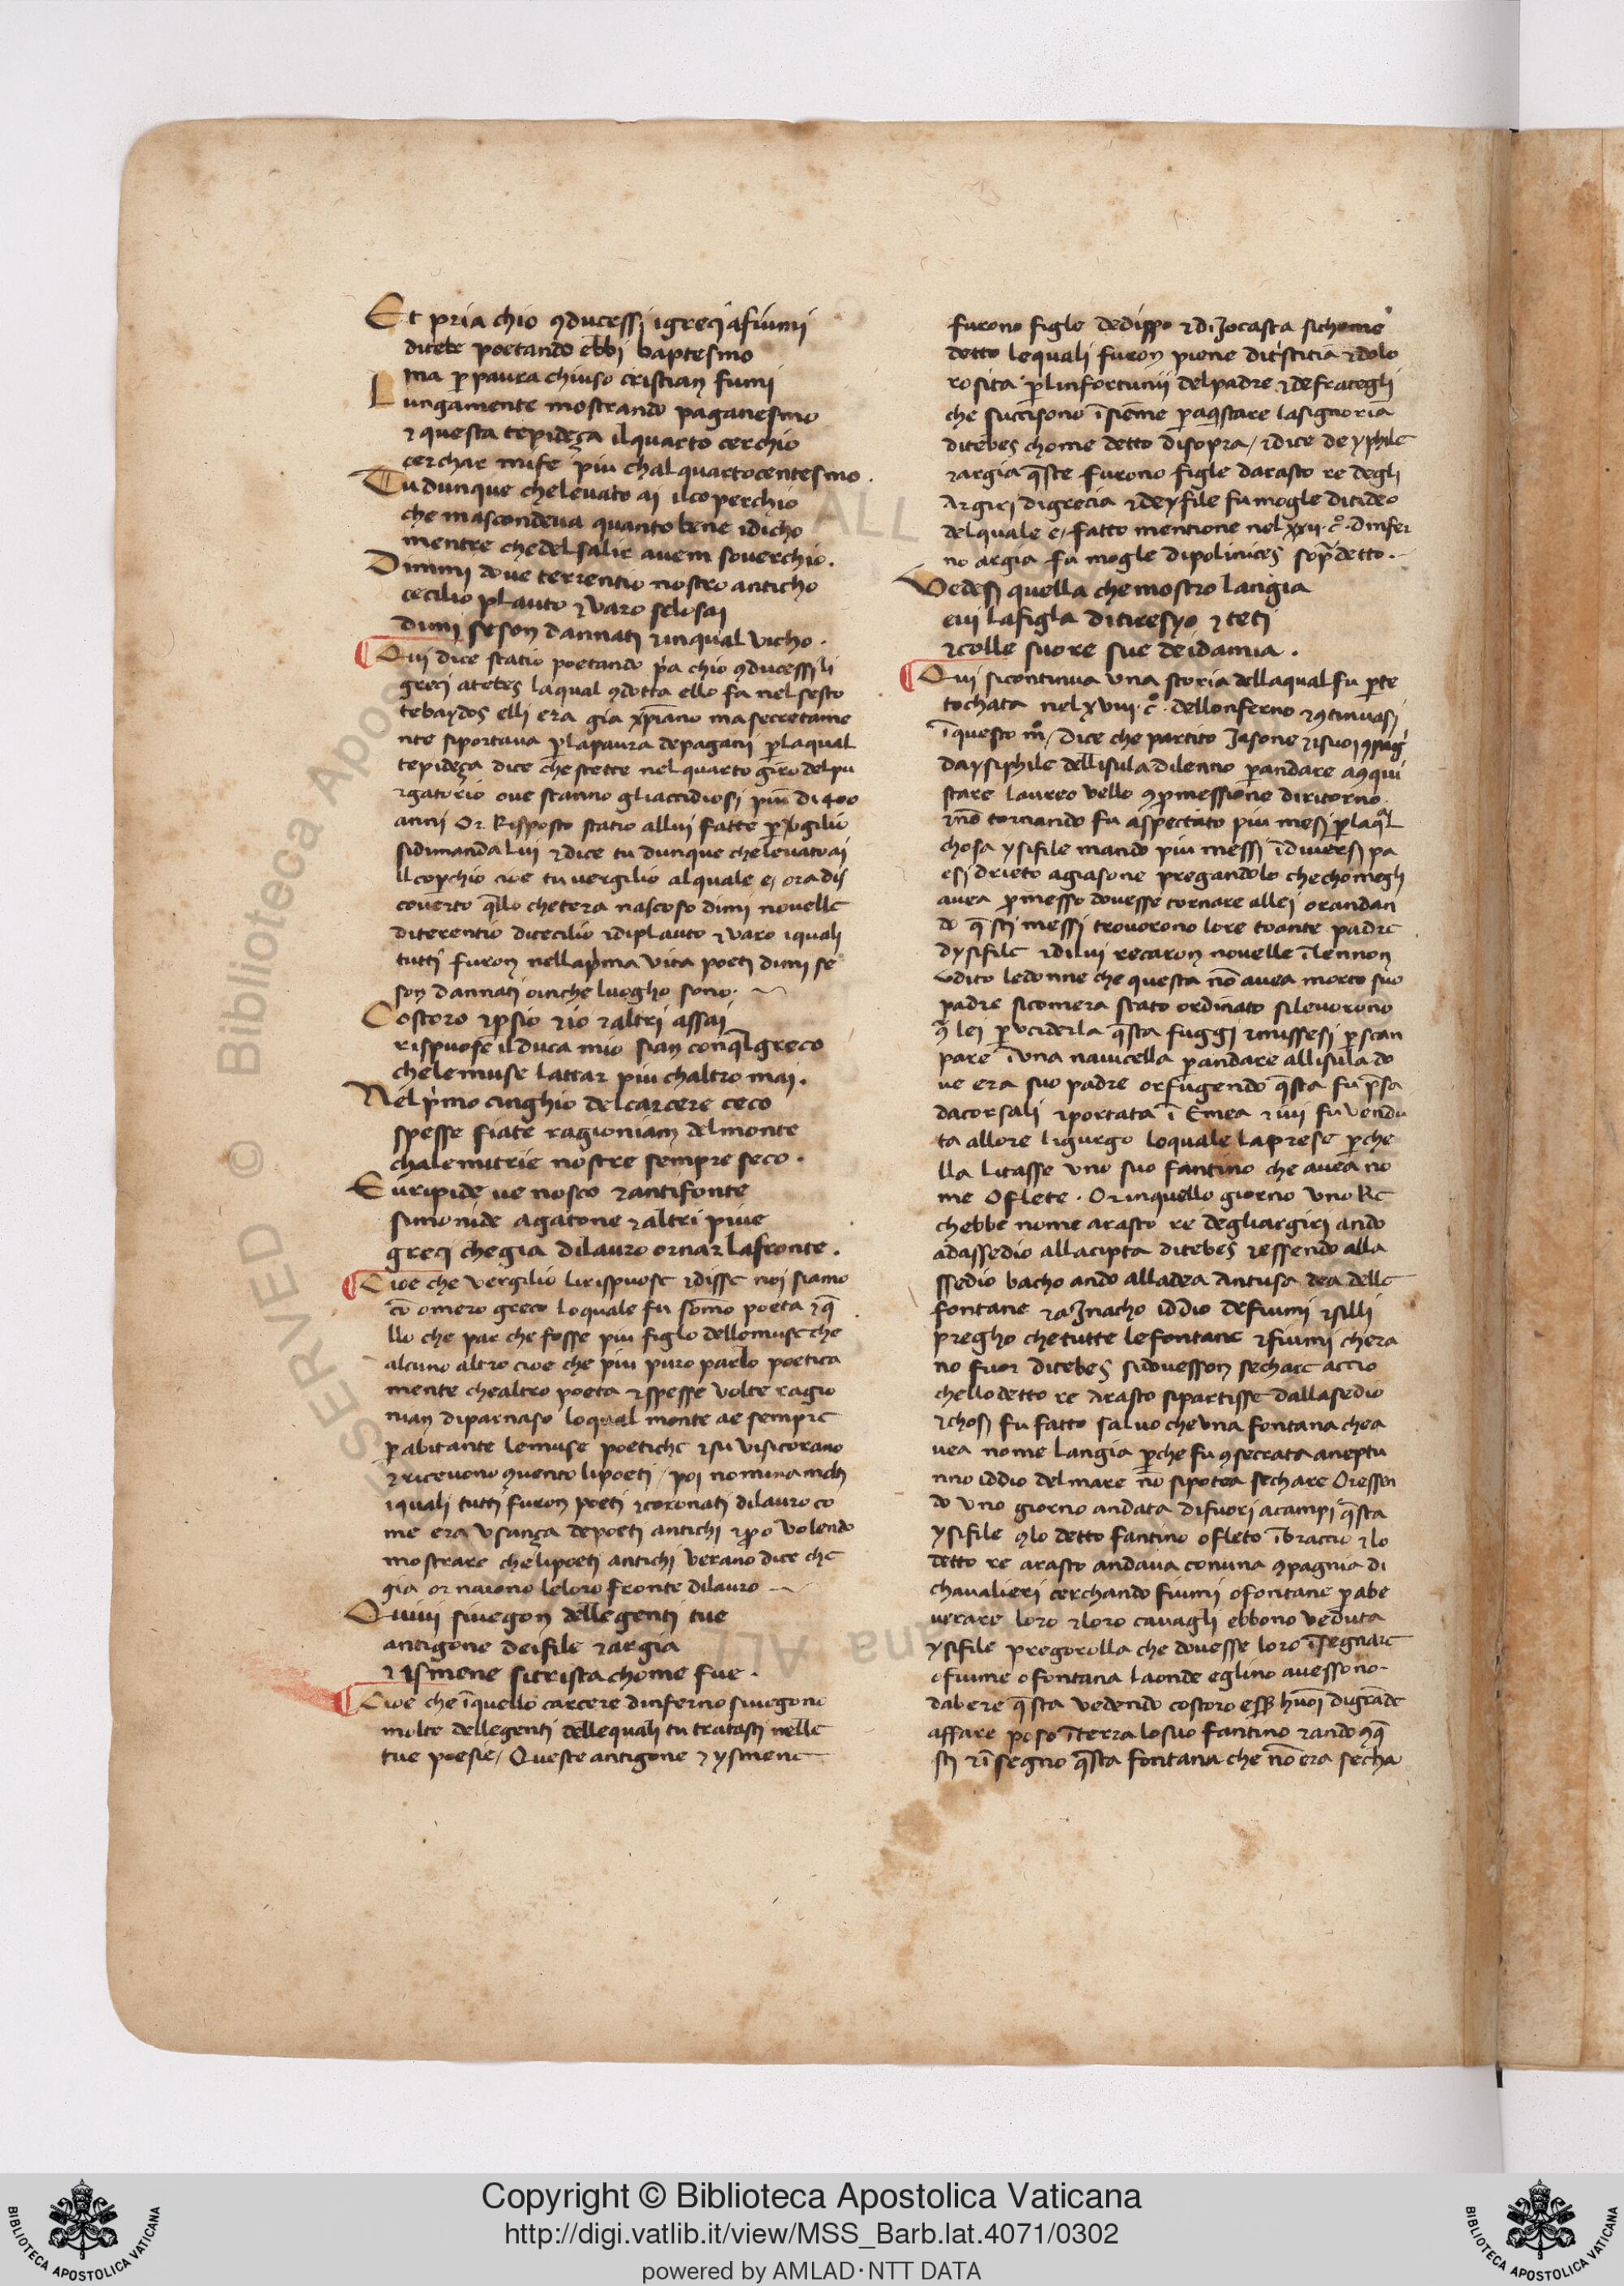 Et pria chio ꝯducessi igreci afiumi
ditebe poetando ebbi baptesmo
ma ꝑ paura chiuso cristian fumi
Lungamente mostrando paganesmo
⁊ questa tepideça ilquarto cerchio
cerchiar mife piu chalquartocentesmo.
Tu dunque chelevato ai ilcoperchio
che mascondeva quanto bene idicho
mentre chedelsalir avem soverchio.
Dimmi dove terrentio nostro anticho
cecilio plauto ⁊ varo selosai
dimi seson dannati ⁊inqual vicho.
Qui dice statio poetando pͥa chio ꝯducessi li
greci atebes laqual ꝯdotta ello fa nel sesto
tebaydos elli era gia xp̄iano ma secretame
nte siportava ꝑlapaura depagani ꝑlaqual
tepideça dice che stette nelquarto giro delpu
rgatorio ove stanno gliaccidiosi piu di 400
anni Or Risposto statio allui fatte ꝑ v̓gilio
sidimanda lui ⁊dice tu dunque chelevatoai
llcoꝑchio cioe tu vergilio alquale e, ora dis
coverto q̄llo chetera nascoso dimi novelle
diterentio dicecilio ⁊diplauto ⁊ varo iquali
tutti furon nellapͥma vita poeti dimi se
son dannati oinche luogho sono.
Costoro ⁊ꝑsio ⁊io ⁊altri assai
rispuose ilduca mio sian conq̄lgreco
chelemuse lattar piu chaltro mai.
Nel pͥmo cinghio delcarcere ceco
spesse fiate ragioniam delmonte
chalenutrie nostre sempre seco.
Euripide ve nosco ⁊antifonte
simonide agatone ⁊altri piue
greci chegia dilauro ornar lafronte.
Cioe che vergilio lirispuose ⁊disse noi siamo
cō omero greco loquale fu som̄o poeta ⁊q̄
llo che par che fosse piu figlo dellemuse che
alcuno altro cioe che piu puro parlo poetica
mente chealtro poeta ⁊spesse volte ragio
nian diparnaso loqual monte ae sempre
ꝑ abitante lemuse poetiche ⁊su visicorano
⁊ricevono ꝯvento lipoeti / poi nomina molti
iquali tutti furon poeti ⁊coronati dilauro co
me era usança depoeti antichi ⁊ꝑo volendo
mostrare chelipoeti antichi verano dice che
gia ornarono leloro fronte dilauro
Quivi sivegon dellegenti tue
antigone deifile ⁊argia
⁊ ismene sitrista chome fue.
Cioe che īquello carcere dinferno sivegono
molte dellegenti dellequali tu tratasti nelle
tue poesie / Queste antigone ⁊ ysmene
furono figle dedippo ⁊di Jocasta sichome
detto lequali furon piene ditristitia ⁊dolo
rosita ꝑlinfortunii delpadre ⁊defrategli
che succisono īsieme ꝑaq̄stare lasignoria
ditebes chome detto disopra / ⁊dice deyphile
⁊argia q̄ste furono figle darasto re degli
Argiri digrecia ⁊deyfile fu mogle ditideo
delquale e, fatto mentione nel xxii. c̊. dinfer
no argia fu mogle dipolinices sop̄detto.
Vedesi quella chemostro langia
evi lafigla ditiresyo ⁊ teti
⁊colle suore sue deidamia.
Qui sicontinua una storia dellaqual fu ꝑte
tochata nel xviii. c̊. dellonferno ⁊ꝯtinuasi
ī questo m̊ / dice che partito Jasone ⁊isuoi ꝯpagͥ
daysiphile dellisula dilenno ꝑandare aꝯqui
stare laureo vello ꝯ ꝓmessione diritorno.
⁊nō tornando fu aspectato piu mesi ꝑlaq̄l
chosa ysifile mando piu messi īdiversi pa
esi drieto agiasone pregandolo chechomegli
avea ꝓmesso dovesse tornare allei orandan
do q̄sti messi trovorono lore toante padre
dysifile ⁊dilui recaron novelle īlennon
udito ledonne che questa nō avea morto suo
padre sicomera stato ordinato silevorono
ꝯ̄ lei ꝑ ucciderla q̄sta fuggi ⁊missesi ꝑ scan
pare ī una navicella ꝑandare allisula do
ve era suo padre orfugendo q̄sta fu p̄sa
dacorsali ⁊portata ī Emea ⁊ivi fu vendu
ta allore ligurgo loquale laprese ꝑche
lla litasse uno suo fantino che avea no
me Oflete. Or inquello giorno uno Re
chebbe nome arasto re degliargiri ando
adassedio allacipta ditebes ⁊essendo alla
ssedio bacho ando alladea Antusa dea delle
fontane ⁊a Inacho iddio defiumi ⁊silli
pregho chetutte lefontane ⁊fiumi chera
no fuor ditebes sidovesson sechare accio
chellodetto re Arasto sipartisse dallasedio
⁊chosi fu fatto salvo cheuna fontana chea
vea nome langia ꝑche fu ꝯsecrata aneptu
nno iddio delmare nō sipotea sechare Oressen
do uno giorno andata difuori acampi q̄sta
ysifile ꝯlo detto fantino ofleto ībraccio ⁊lo
detto re arasto andava conuna ꝯpagnia di
chavalieri cerchando fiumi o fontane ꝑ abe
verare loro ⁊loro cavagli ebbono veduta
ysifile pregorolla che dovesse loro īsegnare
ofiume o fontana laonde eglino avessono.
dabere q̄sta vedendo costoro esser huoī digrāde
affare poso īterra losuo fantino ⁊ando ꝯq̄
sti ⁊īsegno q̄sta fontana che nō era secha
Copyright © Biblioteca Apostolica Vaticana
http://digi.vatlib.it/view/MSS_Barb.lat.4071/0302
powered by AMLAD·NTT DATA
BIBLIOTECA APOSTOLICA VATICANA
BIBLIOTECA APOSTOLICA VATICANA